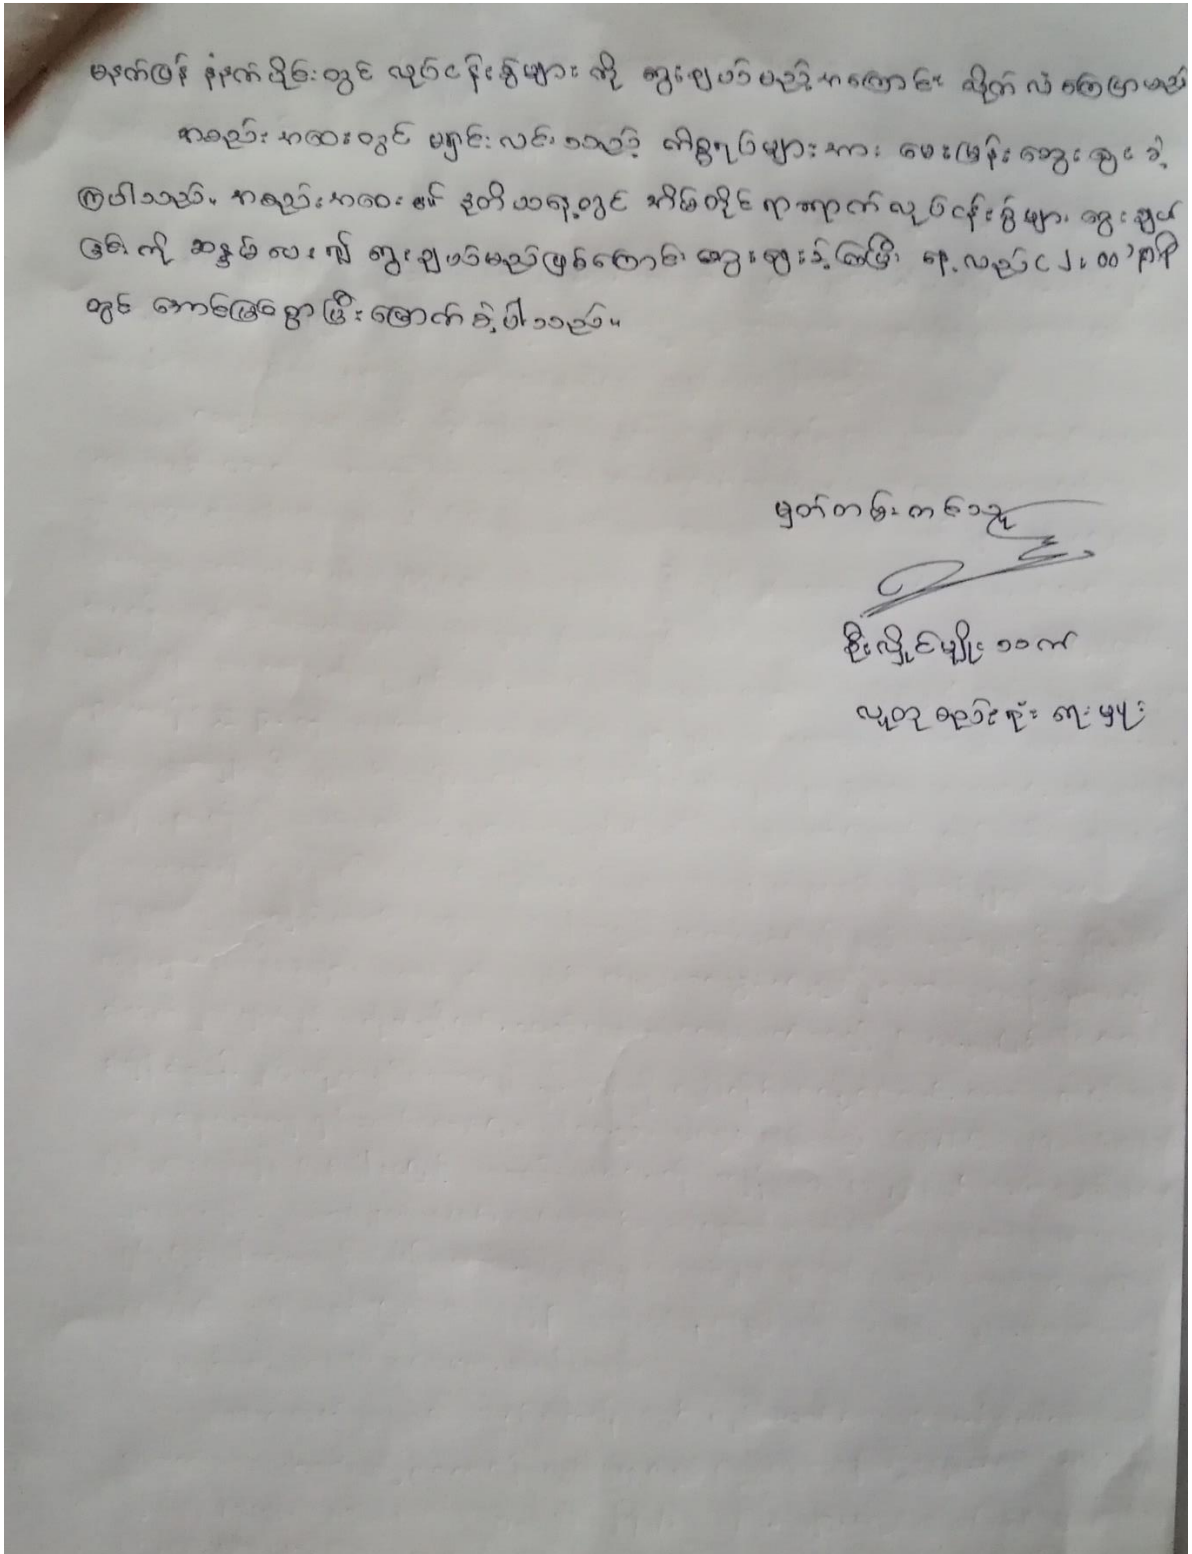 မနက်ဖြန် နံနက်ပိုင်းတွင် လုပ်ငန်းခွဲများ ကို ရွေးချယ်မည့်အကြောင်း လိုက်လံ ကြေငြာမည်
အစည်းအဝေးတွင် မရှင်းလင်းသည့် ကိစ္စရပ်များအား မေးမြန်းဆွေးနွေးခဲ့
ကြပါသည်။ အစည်းအဝေး ဒုတိယနေ့တွင် အိမ်တိုင်ရာရောက်လုပ်ငန်းခွဲများ ရွေးချယ်
ခြင်းကို ဆန္ဒမဲပေး၍ ရွေးချယ်မည်ဖြစ်ကြောင်း ဆွေးနွေးခဲ့ကြပြီး နေ့လည် ၁၂:၀၀ နာရီ
တွင် အောင်မြင်စွာပြီးမြောက်ခဲ့ပါသည်။
မှတ်တမ်းတင်သူ
ဦးလှိုင်မျိုးသက်
လူထုစည်းရုံးရေးမှူး